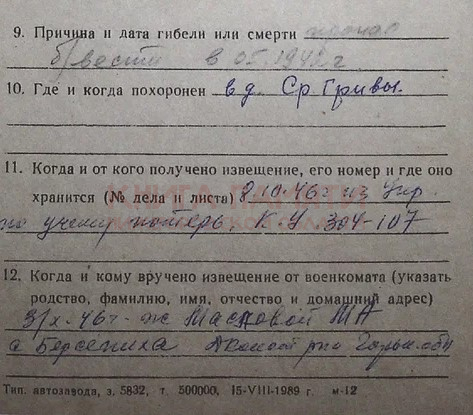 9. Причина и дата гибели или смерти пропал
б/вести в 05.1942 г
10. Где и когда похоронен в д. Ср Гривы.
11. Когда и от кого получено извещение, его номер и где оно
хранится (№ дела и листа) 9.10.46г из Упр
по учету потерь, К.У 304-107
12. Когда и кому вручено извещение от военкомата (указать
родство, фамилию, имя, отчество и домашний адрес)
3/X-46г- ж МА
с Берсениха обл
Тип. автозавода, з. 5832, т. 500000, 15-VIII-1989 г. м-12